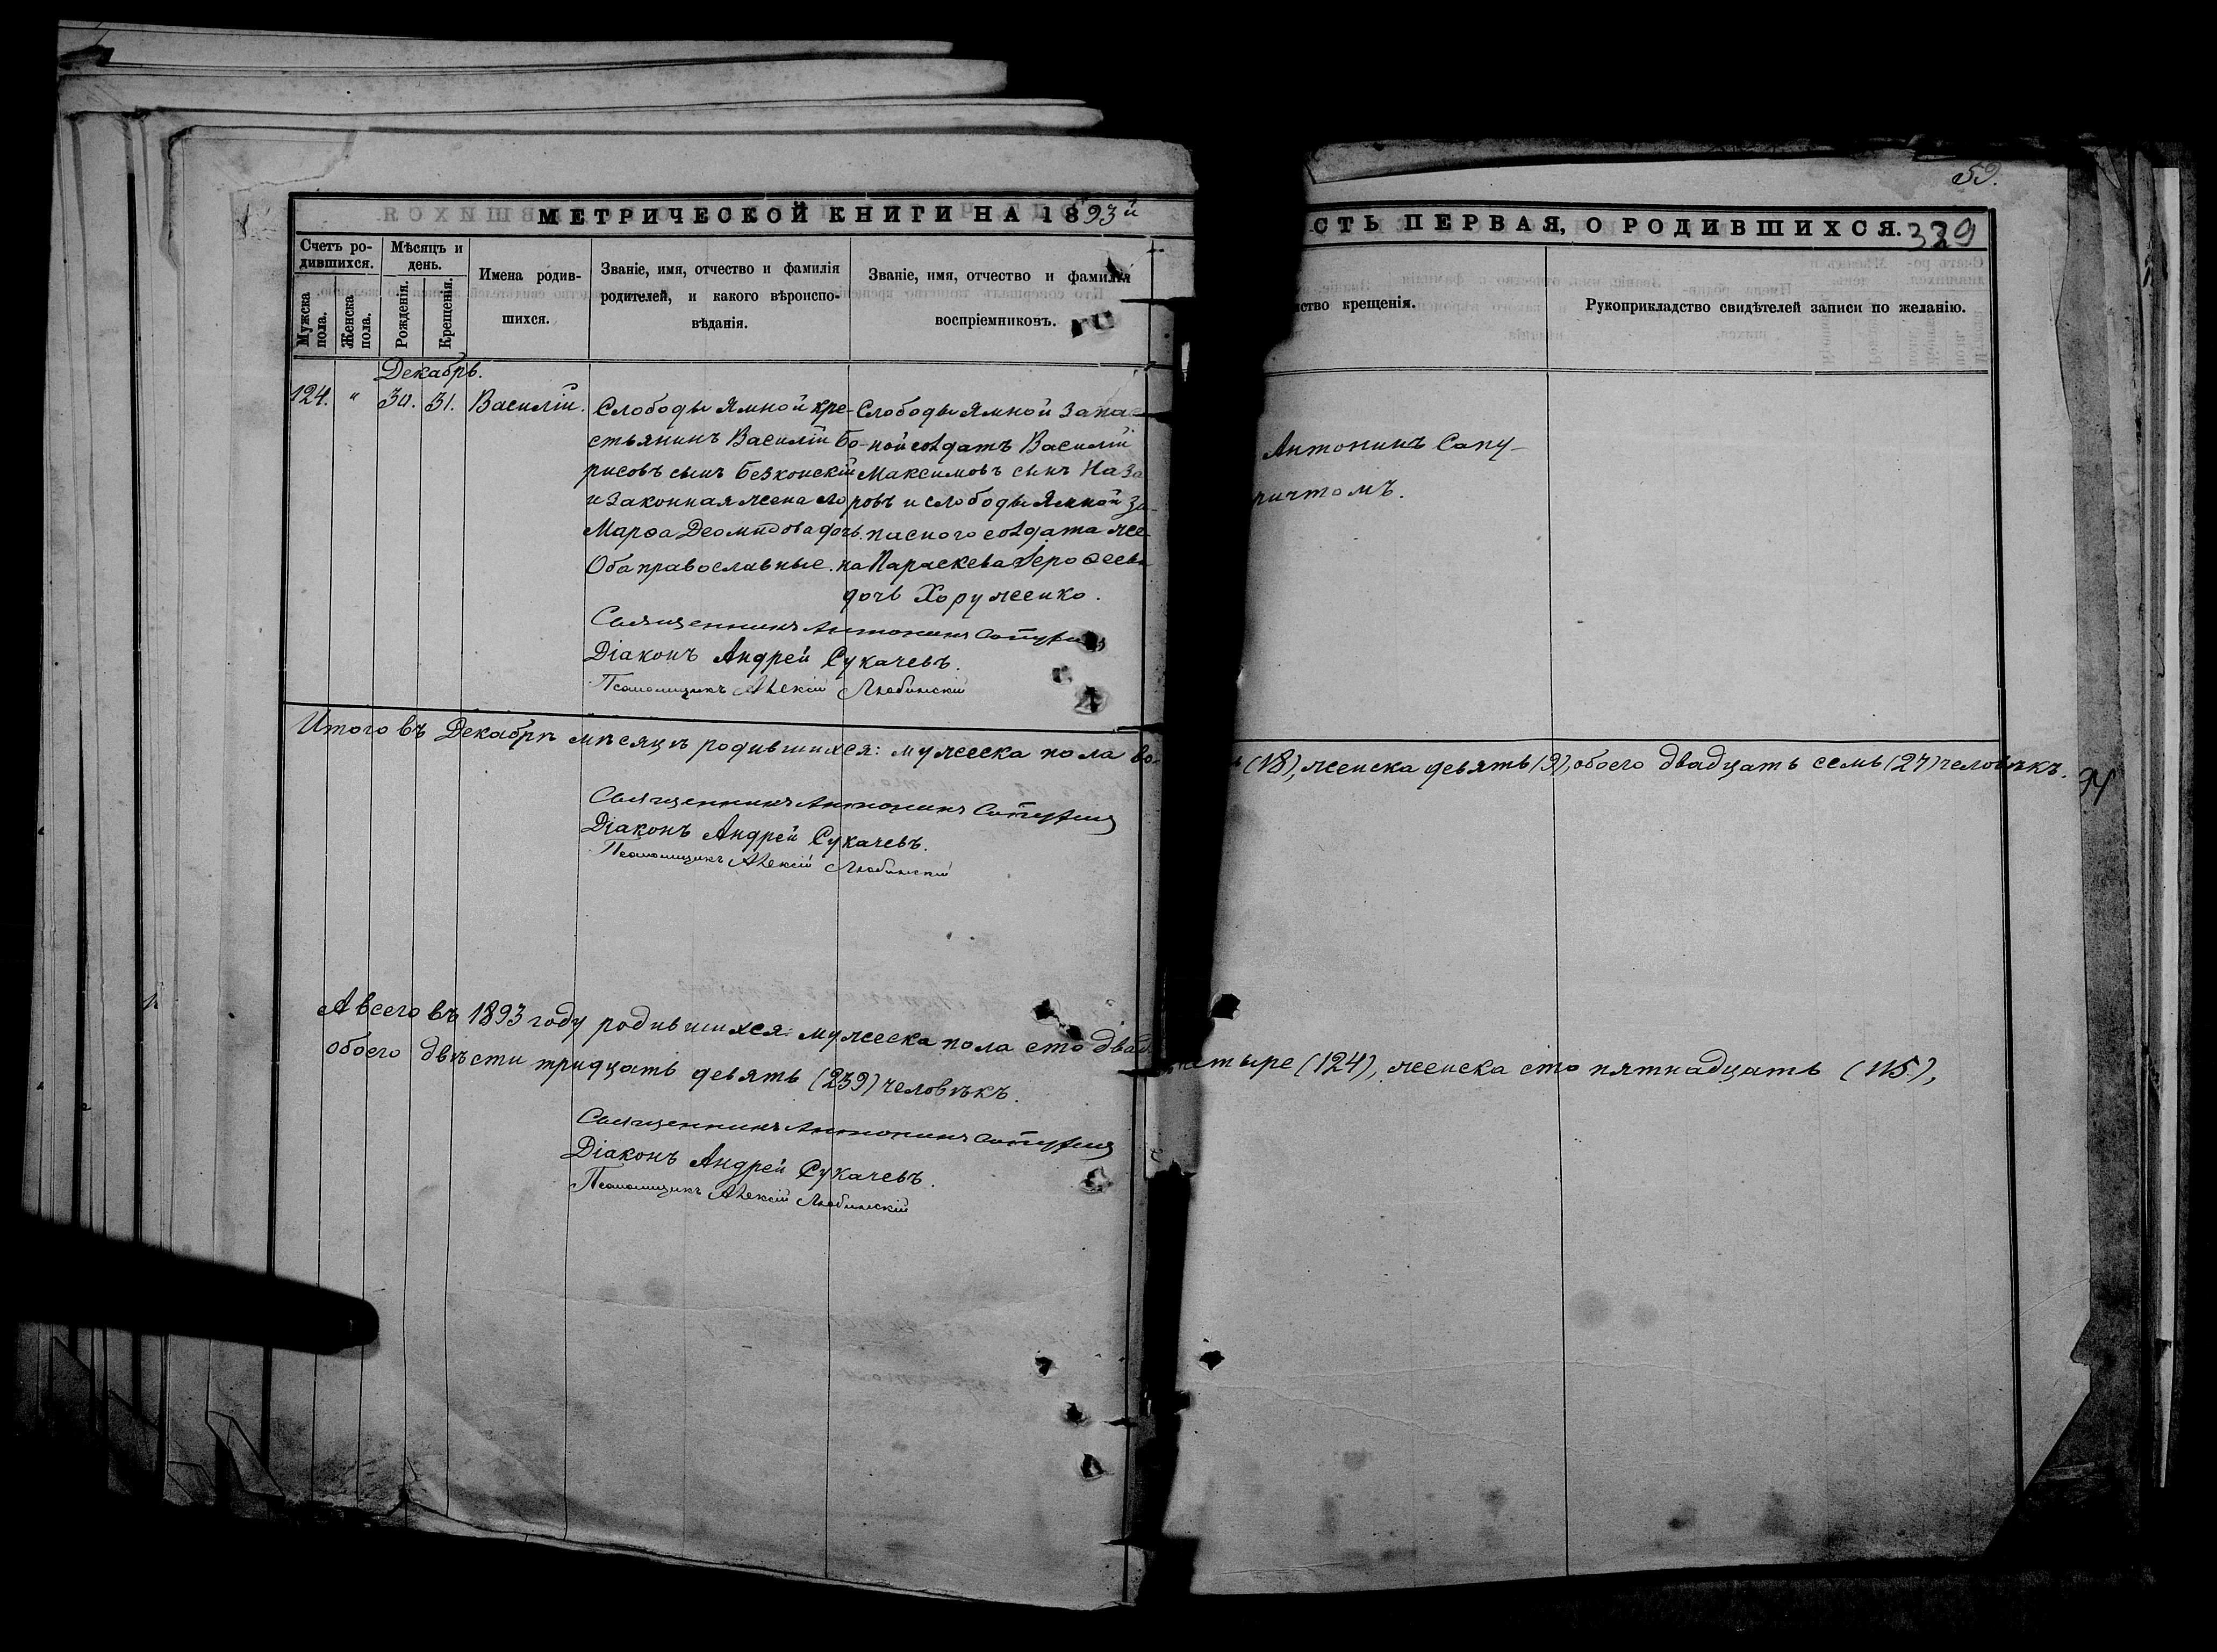 59.
МЕТРИЧЕСКОЙ КНИГИ НА 1893й
СТЬ ПЕРВАЯ, О РОДИВШИХСЯ. 339
Счетъ ро-
дившихся.
Мужска
пола.
Женска
пола.
Мѣсяцъ и
день.
Рожденія.
Крещенія.
Имена родив-
шихся.
Званіе, имя, отчество и фамилія
родителей, и какого вѣроиспо-
вѣданія.
Званіе, имя, отчество и фамилія
воспріемниковъ.
нство крещенія.
Рукоприкладство свидѣтелей записи по желанію.
Декабрь.
124. " 30. 31. Василій.
Слободы Ямной кре-
стьянинъ Василій Бо-
рисовъ сынъ Безконскій
и законная жена его
Марѳа Деомидова дочь.
Оба православные.
Слободы Ямной запас
ной солдатъ Василій
Максимовъ сынъ Наза
ровъ и слободы Ямной за-
паснаго солдата же-
на Параскева Дероѳеева
дочь Хоруженко.
Антонинъ Сапу-
ричтомъ.
Священникъ Антонинъ
Діаконъ Андрей Сукачевъ.
Псаломщикъ Алексій Любинскій
Итого въ Декабрѣ мѣсяцѣ родившихся: мужеска пола во-
ь (18), женска девять (9), обоего двадцать семь (27) человѣкъ.
94
Священникъ Антонинъ
Діаконъ Андрей Сукачевъ.
Псаломщикъ Алексій Любинскій
А всего въ 1893 году родившихся: мужеска пола сто двад
четыре (124), женска сто пятнадцать (115),
обоего двѣсти тридцать девять (239) человѣкъ.
Священникъ Антонинъ
Діаконъ Андрей Сукачевъ.
Псаломщикъ Алексій Любинскій